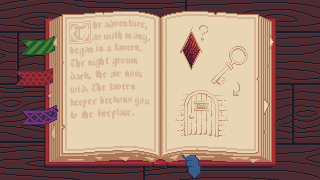 The adventure,
as with many,
began in a tavern.
The night grown
dark, the air now
cold. The tavern
keeper beckons you
to the fireplace.
?